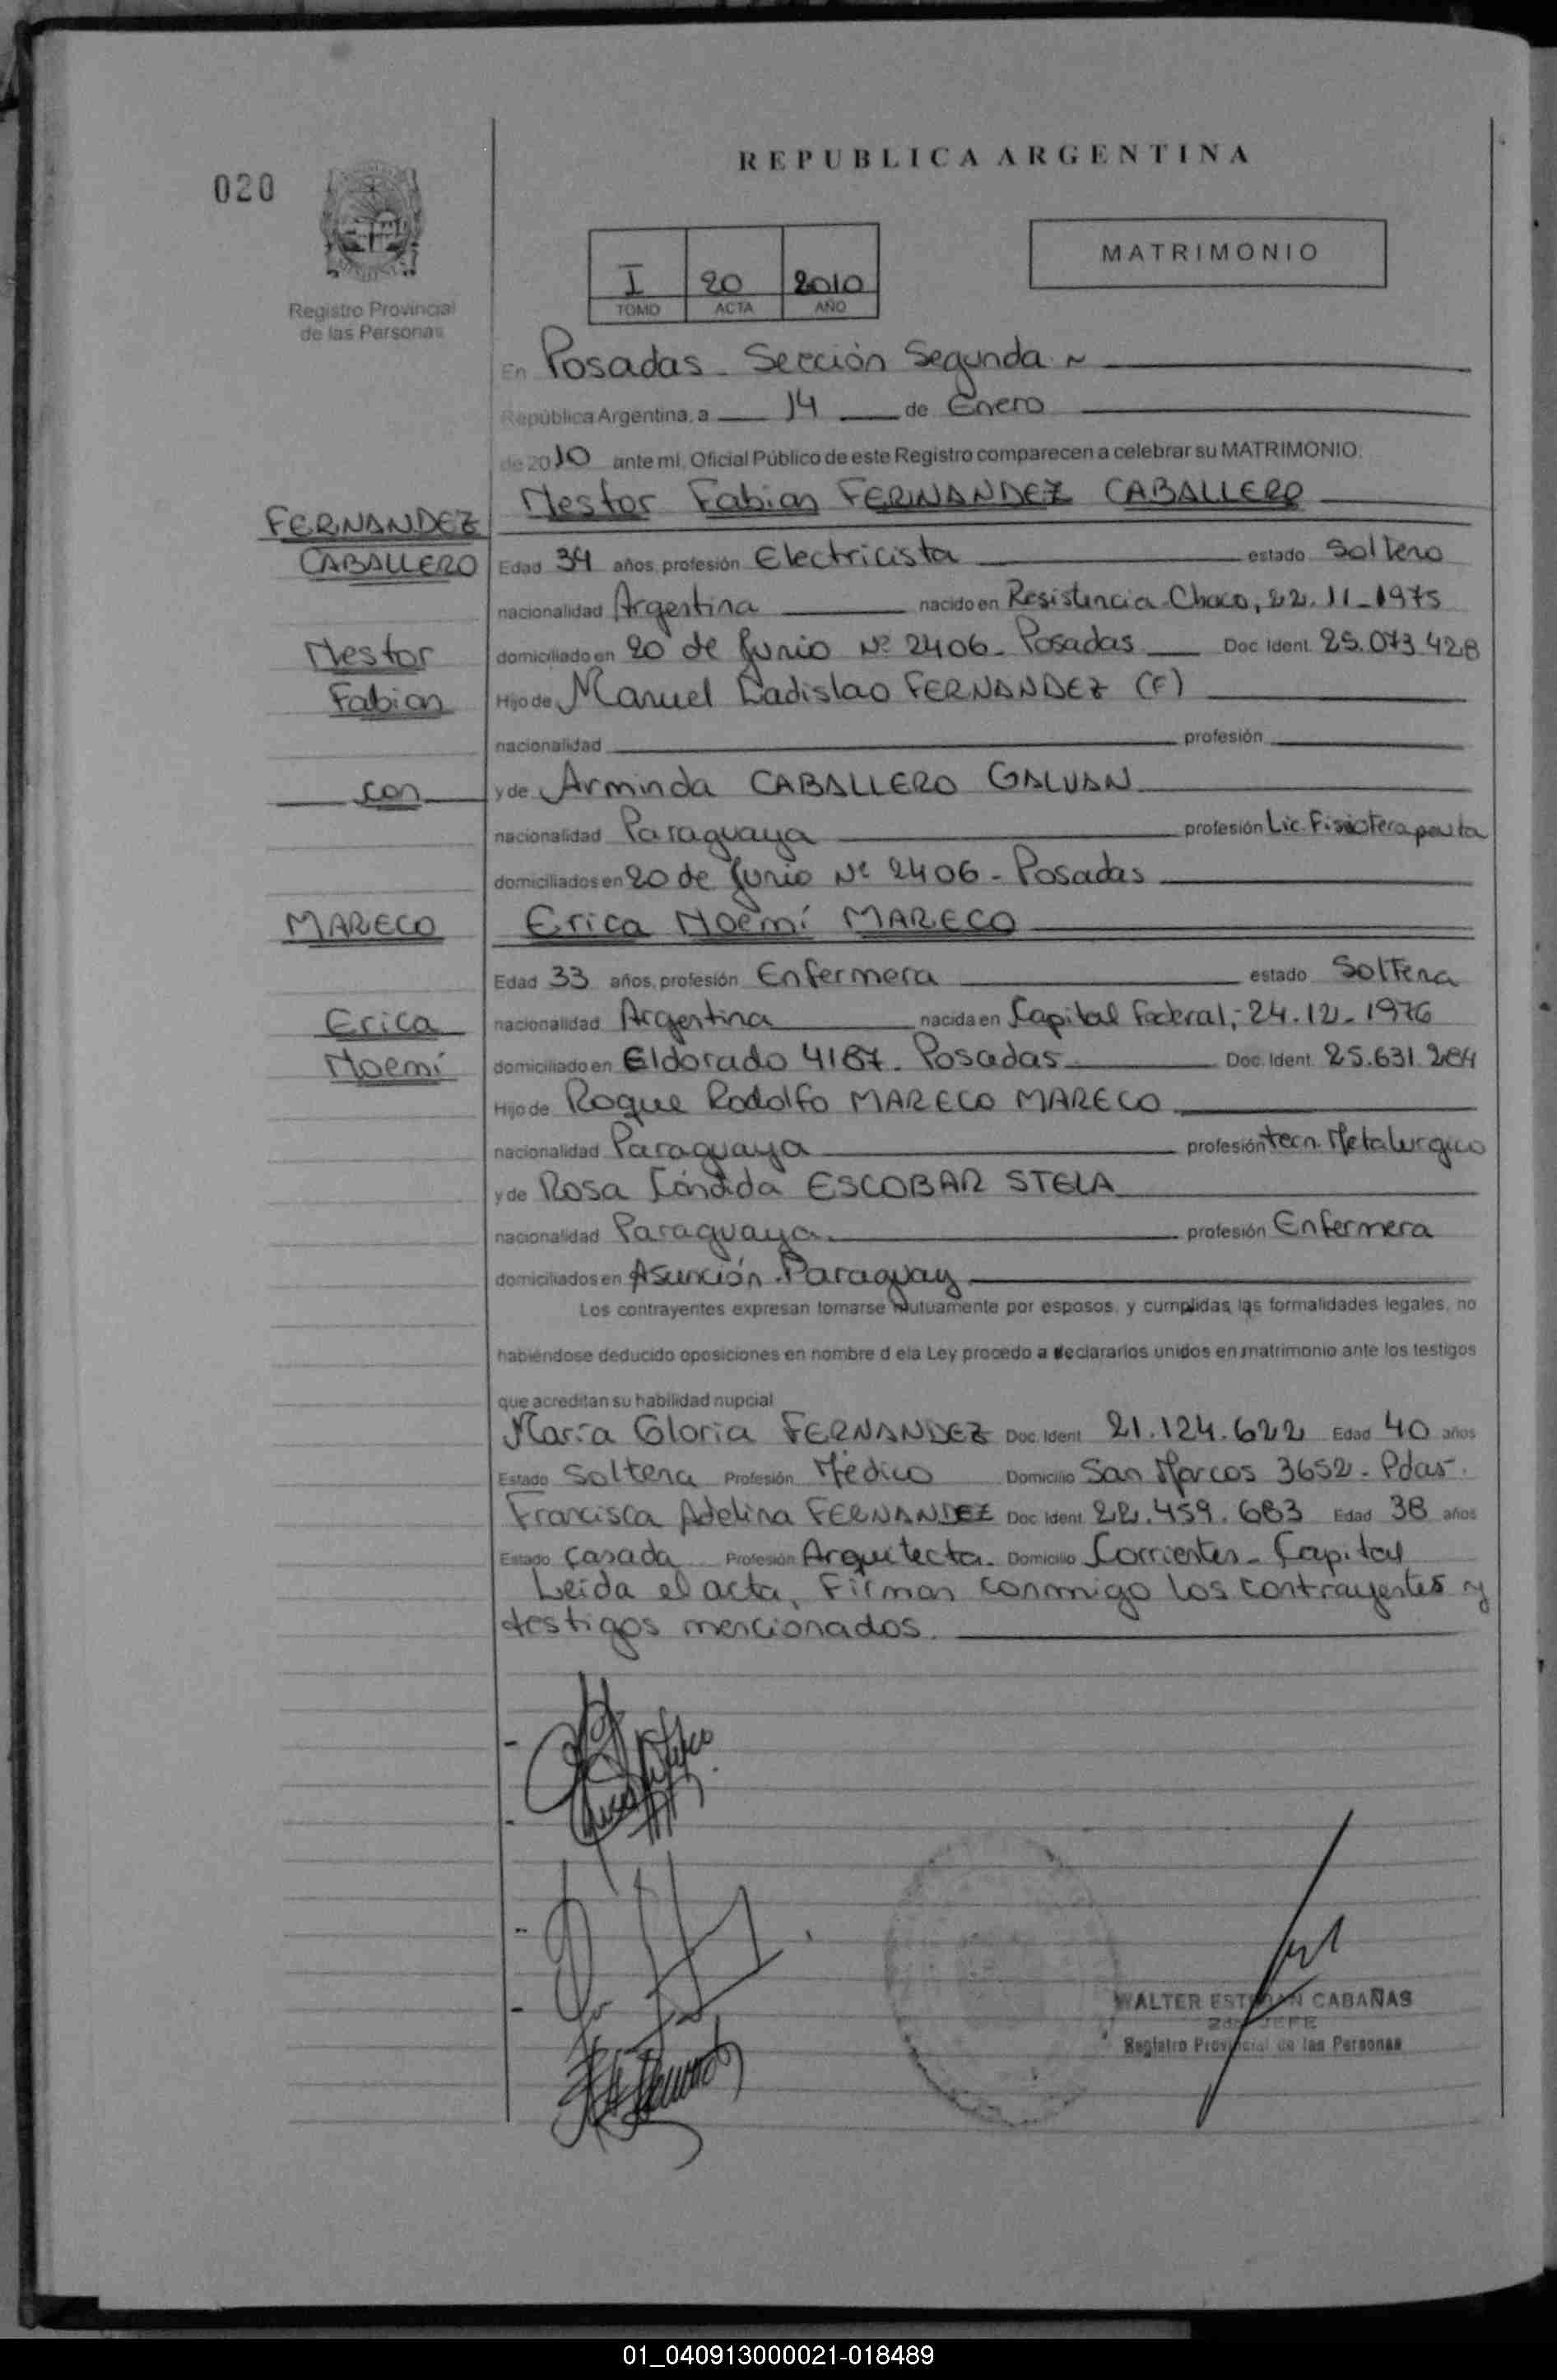 REPUBLICA ARGENTINA
020
MATRIMONIO
I 20 2010
TOMO ACTA AÑO
Registro Provincial
de las Personas
En Posadas - Sección Segunda ~
República Argentina, a 14 de Enero
de 2010 ante mi, Oficial Público de este Registro comparecen a celebrar su MATRIMONIO.
Nestor Fabian FERNANDEZ CABALLERO
FERNANDEZ
CABALLERO
Edad 34 años, profesión Electricista estado Soltero
nacionalidad Argentina nacido en Resistencia-Chaco, 22.11-1975
Nestor
domiciliado en 20 de Junio Nº 2406- Posadas Doc Ident. 25.073.428
Fabian
Hijo de Manuel Ladislao FERNANDEZ (F)
nacionalidad profesión
con
y de Arminda CABALLERO GALVAN
nacionalidad Paraguaya profesión Lic. Fisioterapeuta
domiciliados en 20 de Junio Nº 2406 - Posadas
MARECO
Erica Noemí MARECO
Edad 33 años, profesión Enfermera estado Soltera
Erica
nacionalidad Argentina nacida en Capital Federal, 24.12-1976
Noemí
domiciliado en Eldorado 4187. Posadas Doc. Ident. 25.631.284
Hijo de Roque Rodolfo MARECO MARECO
nacionalidad Paraguaya profesión tecn. Metalurgico
y de Rosa Cándida ESCOBAR STELA
nacionalidad Paraguaya profesión Enfermera
domiciliados en Asunción - Paraguay
Los contrayentes expresan tomarse mutuamente por esposos, y cumplidas las formalidades legales, no
habiéndose deducido oposiciones en nombre d ela Ley procedo a declararlos unidos en matrimonio ante los testigos
que acreditan su habilidad nupcial
María Gloria FERNANDEZ Doc. Ident. 21.124.622 Edad 40 años
Estado Soltera Profesión Médico Domicilio San Marcos 3652 - Pdas.
Francisca Adelina FERNANDEZ Doc. Ident. 22.459.683 Edad 38 años
Estado Casada Profesión Arquitecta. Domicilio Corrientes - Capital
Leida el acta, Firman conmigo los contrayentes y
testigos mencionados.
WALTER ESTEBAN CABAÑAS
2do JEFE
Registro Provincial de las Personas
01_040913000021-018489